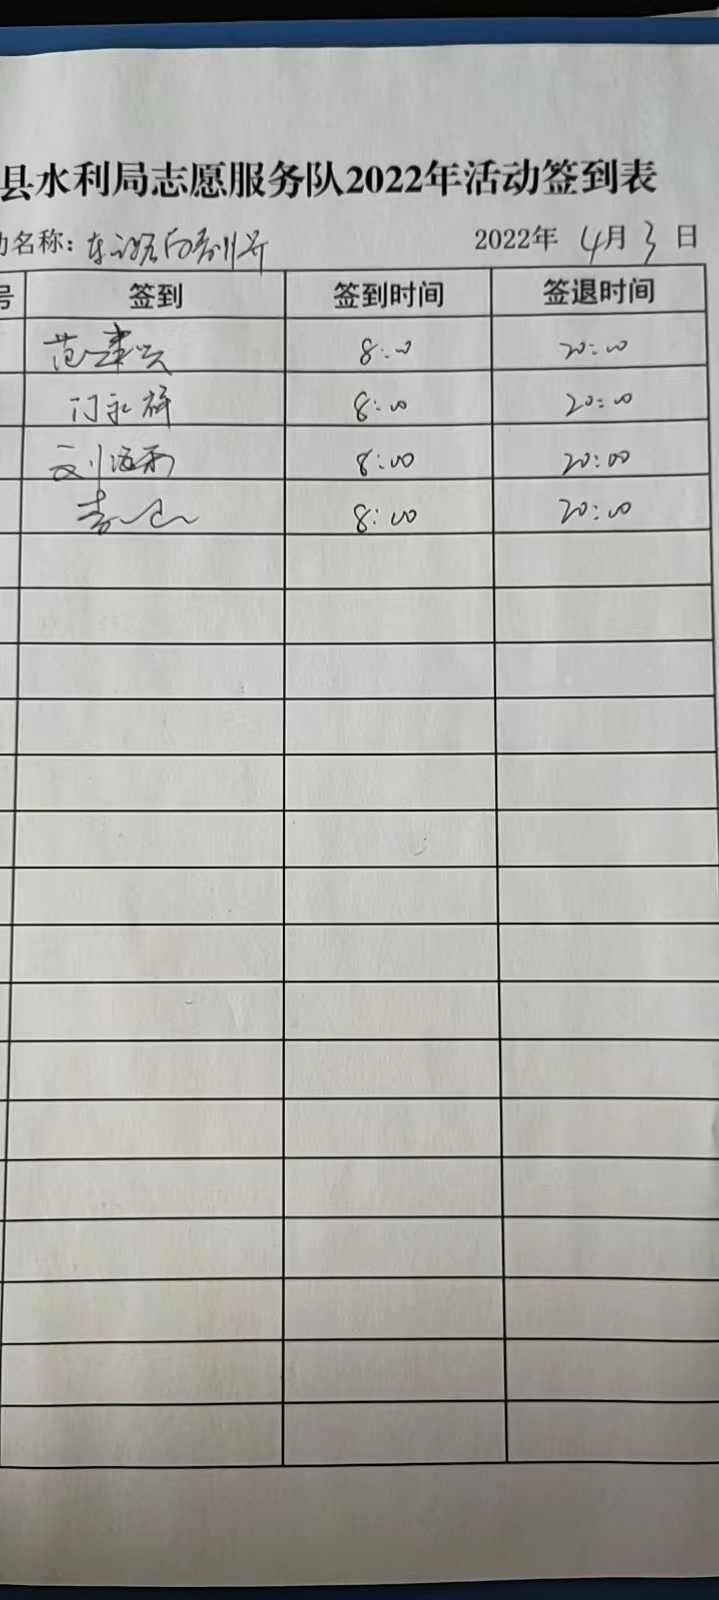 县水利局志愿服务队2022年活动签到表
动名称: 2022年 4月 3 日
号 签到 签到时间 签退时间
范建兴 8:00 20:00
门永祥 8:00 20:00
刘海雨 8:00 20:00
8:00 20:00